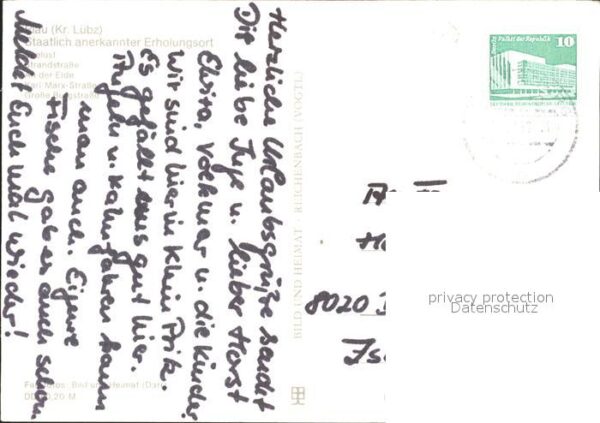 Plau (Kr. Lübz)
Staatlich anerkannter Erholungsort
Strandstraße
An der Elde
Karl-Marx-Straße
Große Burgstraße
Herzliche Urlaubsgrüße sendet
Dir liebe Inge u. lieber Horst
Elvira, Volkmar u. die Kinder
Wir sind hier in Klein Pritz.
Es gefällt uns gut hier.
Angeln u. Kahnfahren kann
man auch. Eigene
Fische gab es auch schon.
Meldet Euch mal wieder!
Fotos: Bild und Heimat (Darr)
BILD UND HEIMAT · REICHENBACH (VOGTL)
Berlin, Palast der Republik
10
8020
privacy protection
Datenschutz